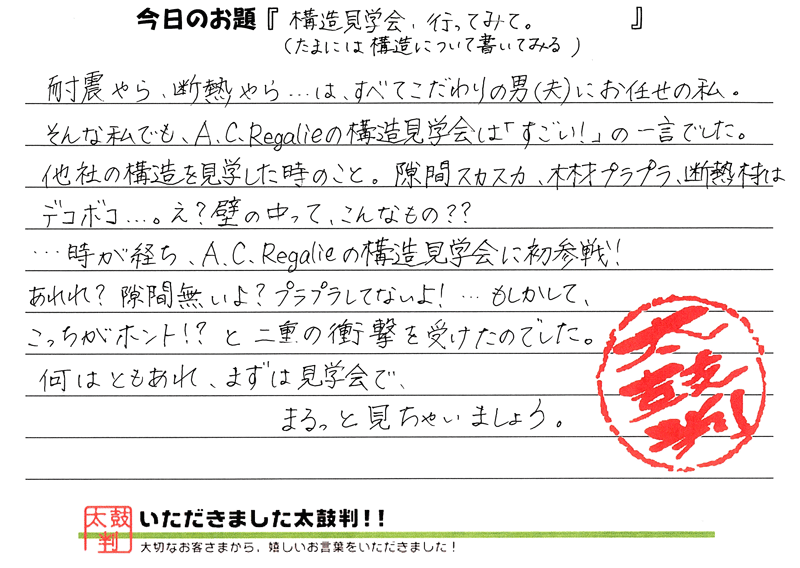 今日のお題『構造見学会、行ってみて。』
(たまには構造について書いてみる)
耐震やら、断熱やら…は、すべてこだわりの男(夫)にお任せの私。
そんな私でも、A.C.Regalieの構造見学会は「すごい!」の一言でした。
他社の構造を見学した時のこと。隙間スカスカ、木材プラプラ、断熱材は
デコボコ…。え?壁の中って、こんなもの??
…時が経ち、A.C.Regalieの構造見学会に初参戦!
あれれ?隙間無いよ?プラプラしてないよ!…もしかして、
こっちがホント!?と二重の衝撃を受けたのでした。
何はともあれ、まずは見学会で、
まるっと見ちゃいましょう。
太鼓判
太鼓判
いただきました太鼓判!!
大切なお客さまから、嬉しいお言葉をいただきました!